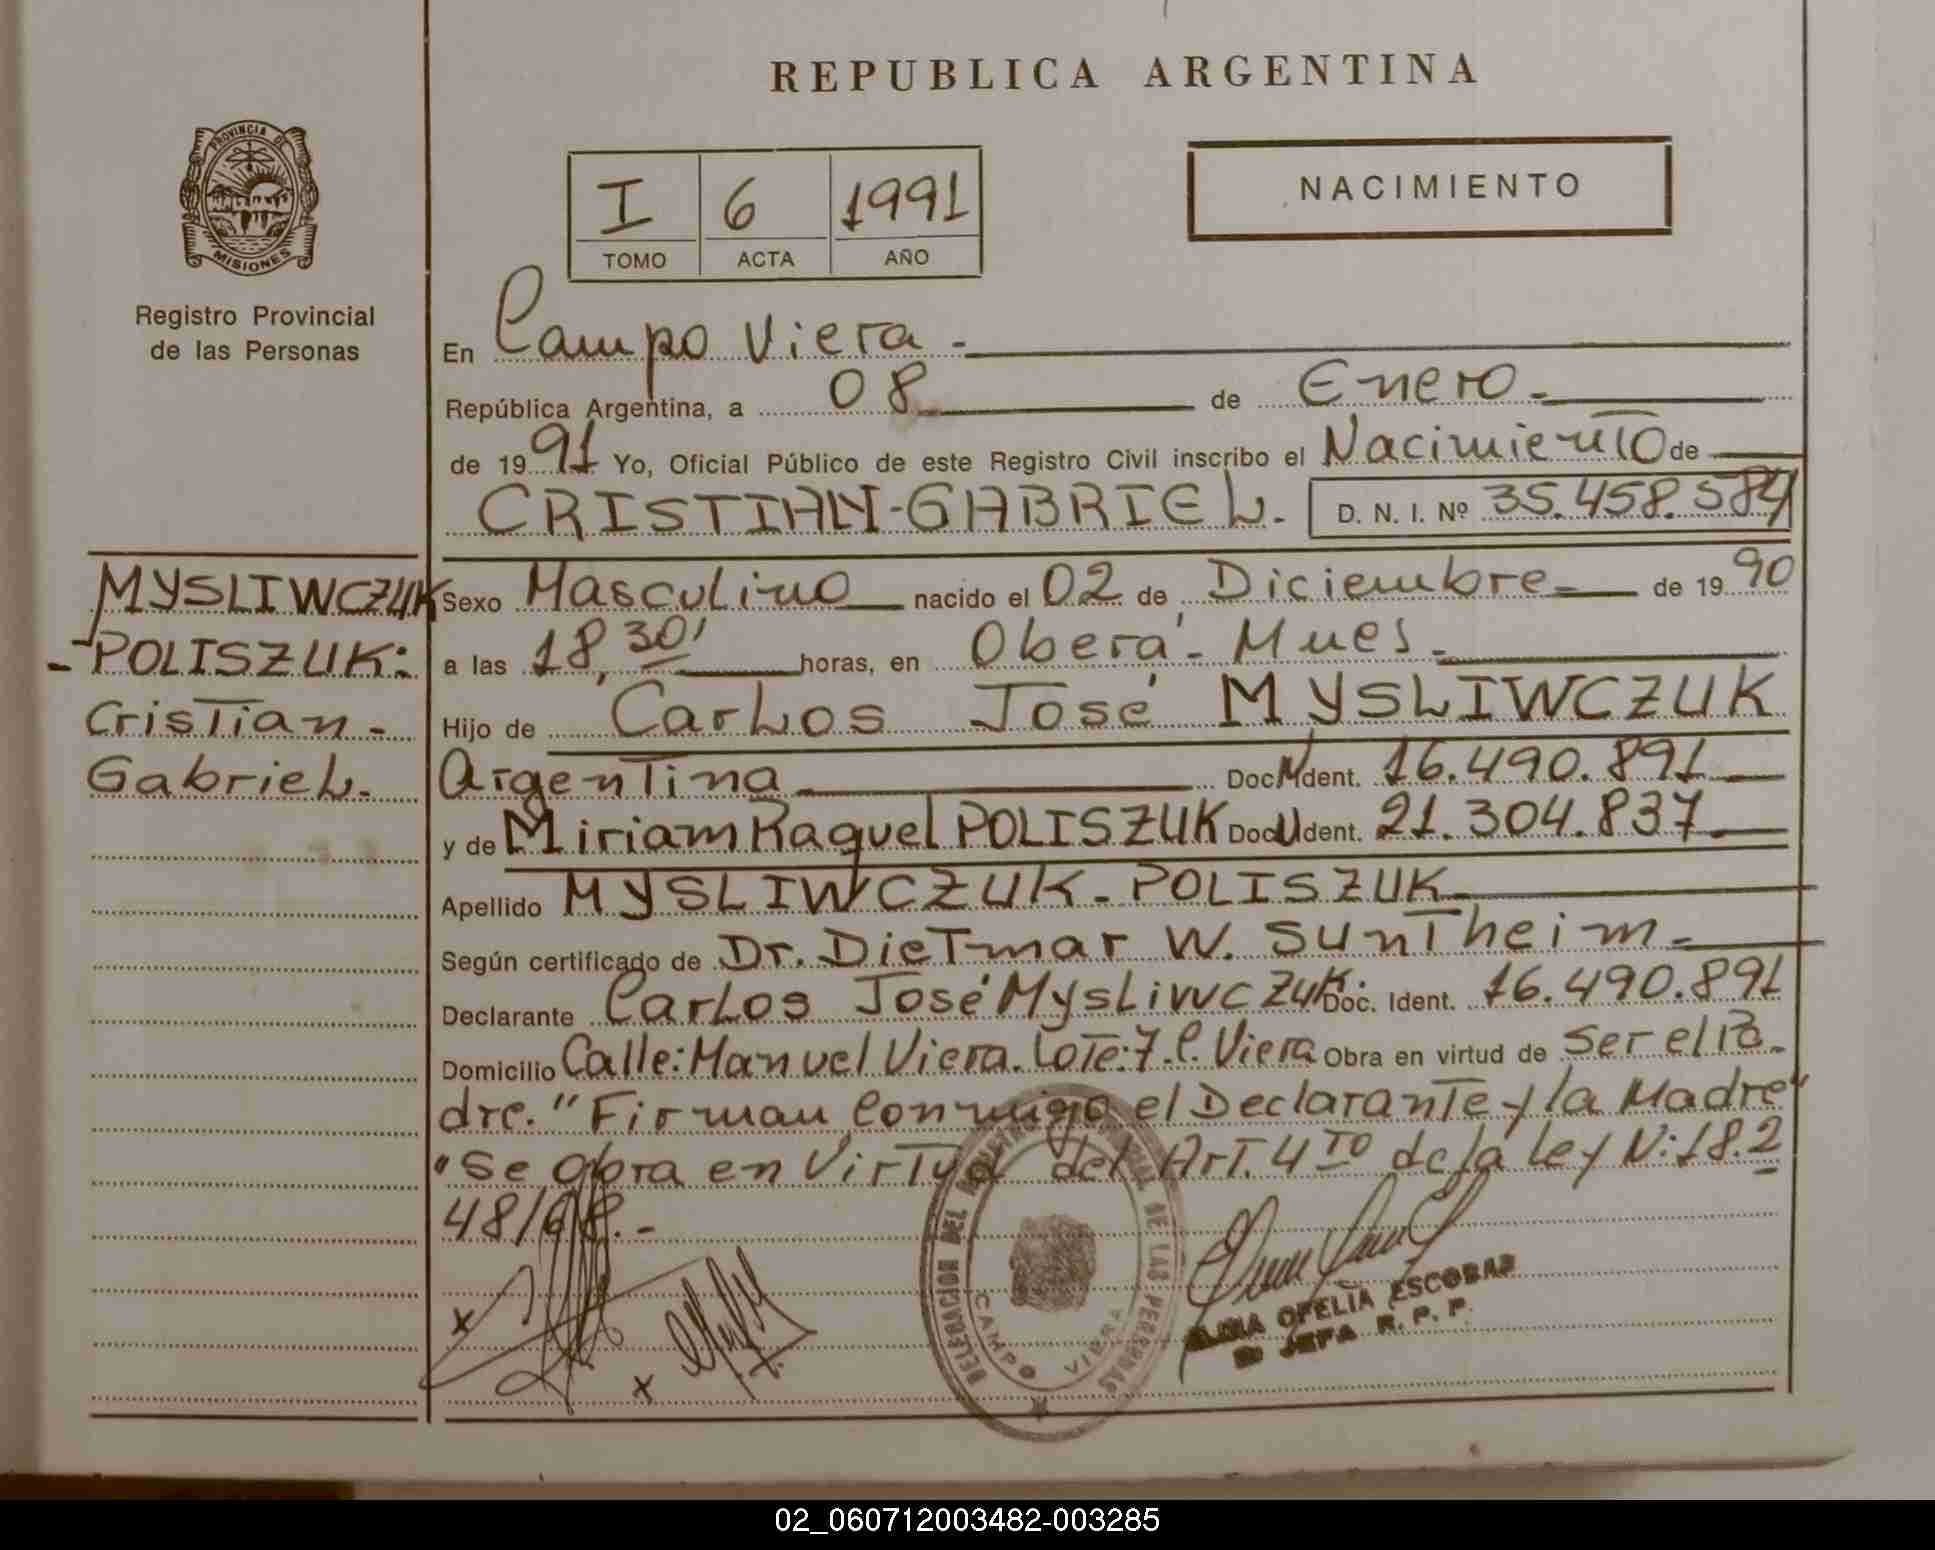 REPUBLICA ARGENTINA
PROVINCIA DE
MISIONES
Registro Provincial
de las Personas
I 6 1991
TOMO ACTA AÑO
NACIMIENTO
En Campo Viera.-
República Argentina, a 08 de Enero.-
de 1991 Yo, Oficial Público de este Registro Civil inscribo el Nacimiento de
CRISTIAN-GABRIEL.- D. N. I. Nº 35.458.584
MYSLIWCZUK
-POLISZUK:
Cristian-
Gabriel.
Sexo Masculino nacido el 02 de Diciembre- de 1990
a las 18,30' horas, en Oberá- Mnes.-
Hijo de Carlos José MYSLIWCZUK
Argentina Doc. Ident. 16.490.891
y de Miriam Raquel POLISZUK Doc. Ident. 21.304.837
Apellido MYSLIWCZUK-POLISZUK
Según certificado de Dr. Dietmar W. Suntheim.-
Declarante Carlos José MYSLiWCZUK. Doc. Ident. 16.490.891
Domicilio Calle: Manuel Viera. Lote: 7 C. Viera Obra en virtud de Ser el Pa-
dre. "Firman Conmigo el Declarante y la Madre"
"Se Obra en Virtud del Art. 4TO de la Ley N: 18.2
48/68.-
x
x
DELEGACION DEL REGISTRO PROVINCIAL DE LAS PERSONAS
CAMPO VIERA
OFELIA ESCOBAR
JEFA R. P. P.
02_060712003482-003285